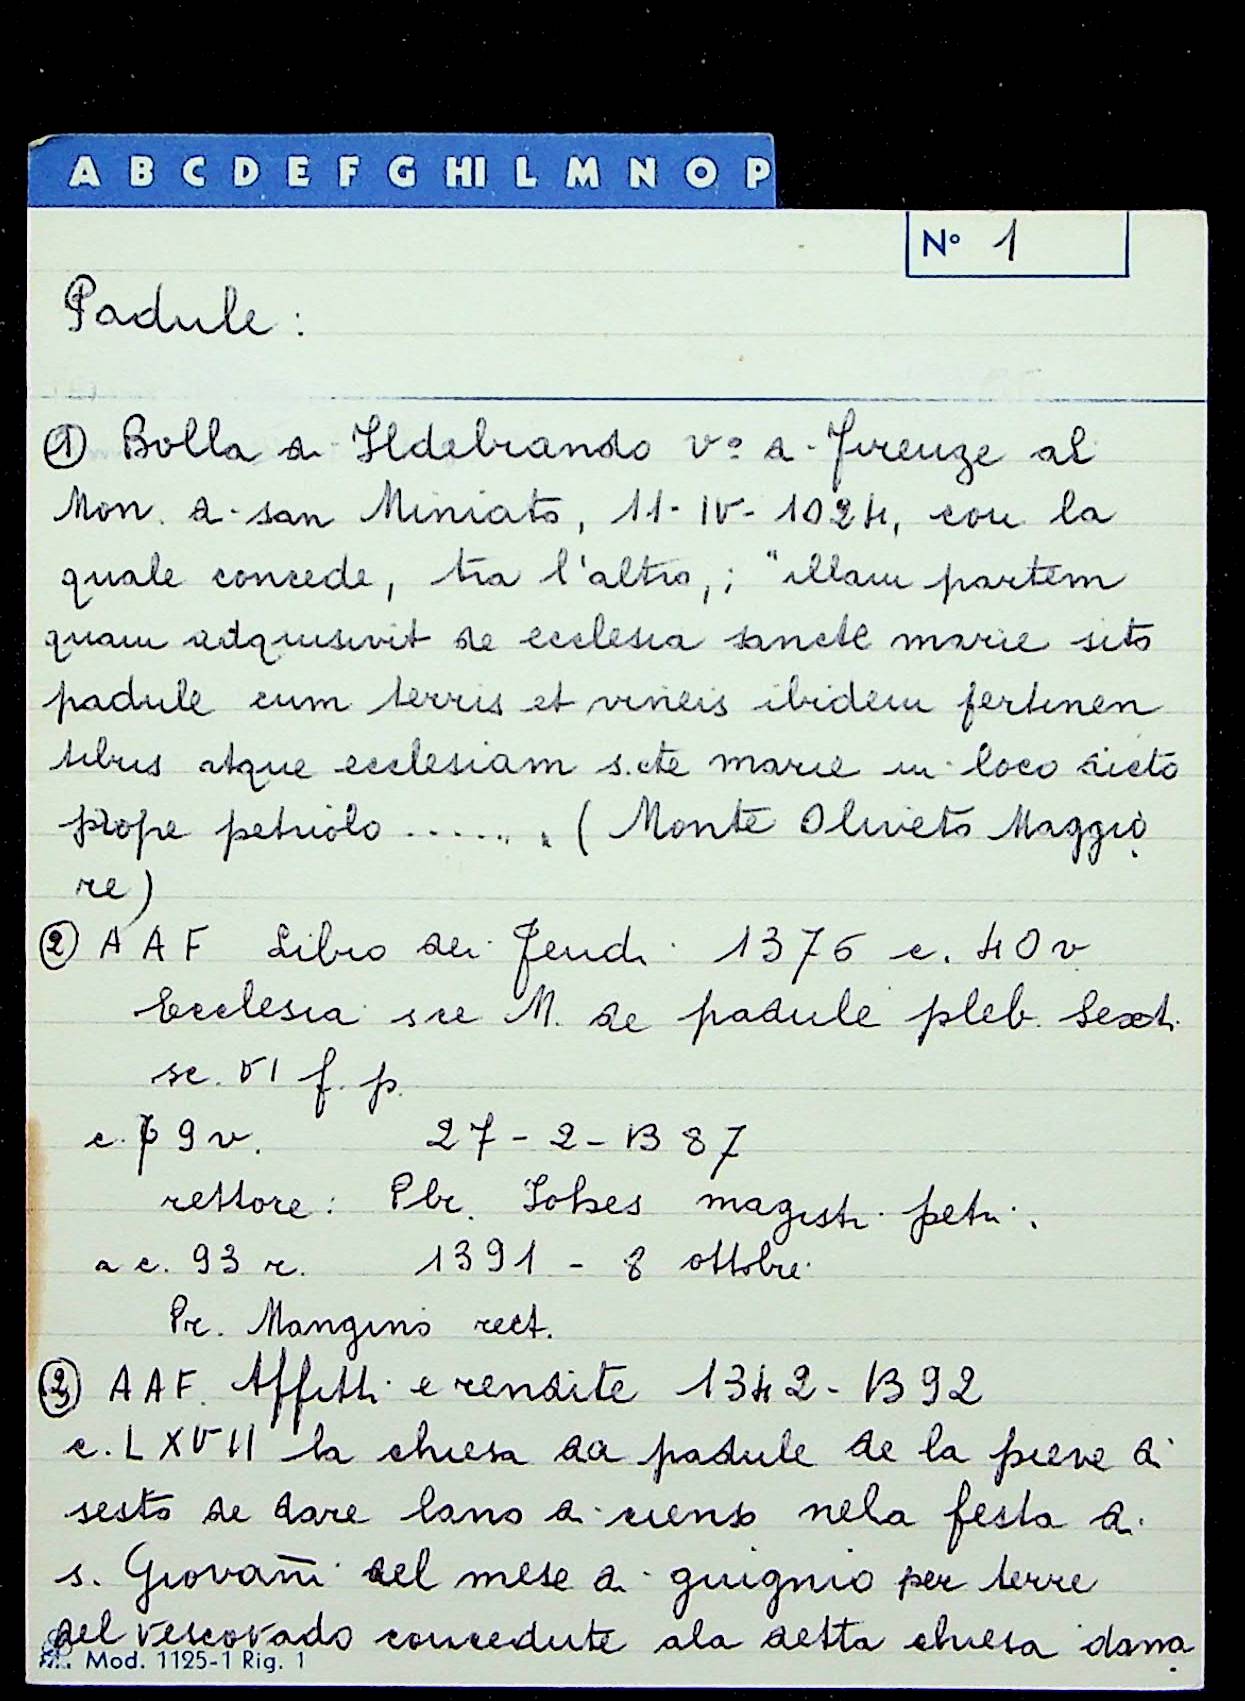 A B C D E F G HI L M N O P
N° 1
Padule:
① Bolla di Ildebrando v° di Firenze al
Mon. di san Miniato, 11-IV-1024, con la
quale concede, tra l'altro,; "illam partem
quam adquisivit de ecclesia sancte marie sito
padule cum terris et vineis ibidem pertinen
tibus atque ecclesiam s.cte marie in loco dicto
prope petriolo ...... (Monte Oliveto Maggio
re)
② AAF Libro dei Feudi 1376 c. 40v
Ecclesia sce M. de padule pleb. Sexti
se. VI f. p.
c. 79v. 27-2-1387
rettore: Pbr. Iohes magistri petri.
a c. 93 r. 1391 - 8 ottobre
Pr. Mangino rect.
③ AAF. Affitti e rendite 1342-1392
c. LXVII la chiesa da padule de la pieve di
sesto de dare lano di cienso nela festa di
s. Giovañi del mese di guignio per terre
del vescovado concedute ala detta chiesa dana
Mod. 1125-1 Rig. 1